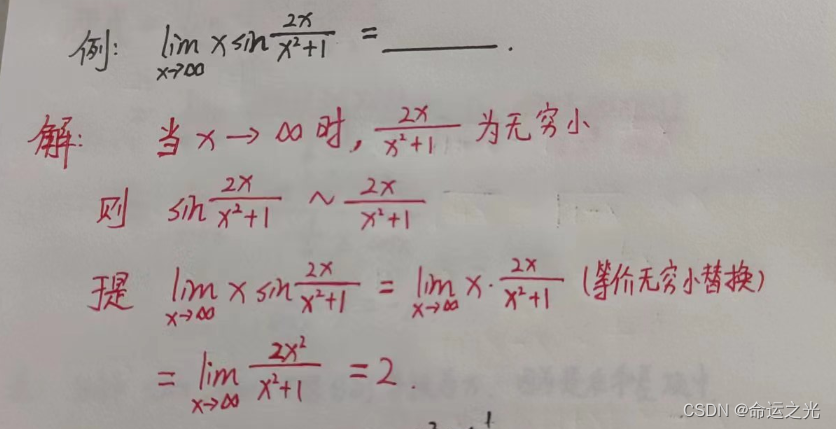 例: lim x→∞ x sin 2x/(x²+1) = ______ .
解: 当 x → ∞ 时, 2x/(x²+1) 为无穷小
则 sin 2x/(x²+1) ~ 2x/(x²+1)
于是 lim x→∞ x sin 2x/(x²+1) = lim x→∞ x · 2x/(x²+1) (等价无穷小替换)
= lim x→∞ 2x²/(x²+1) = 2 .
CSDN @命运之光